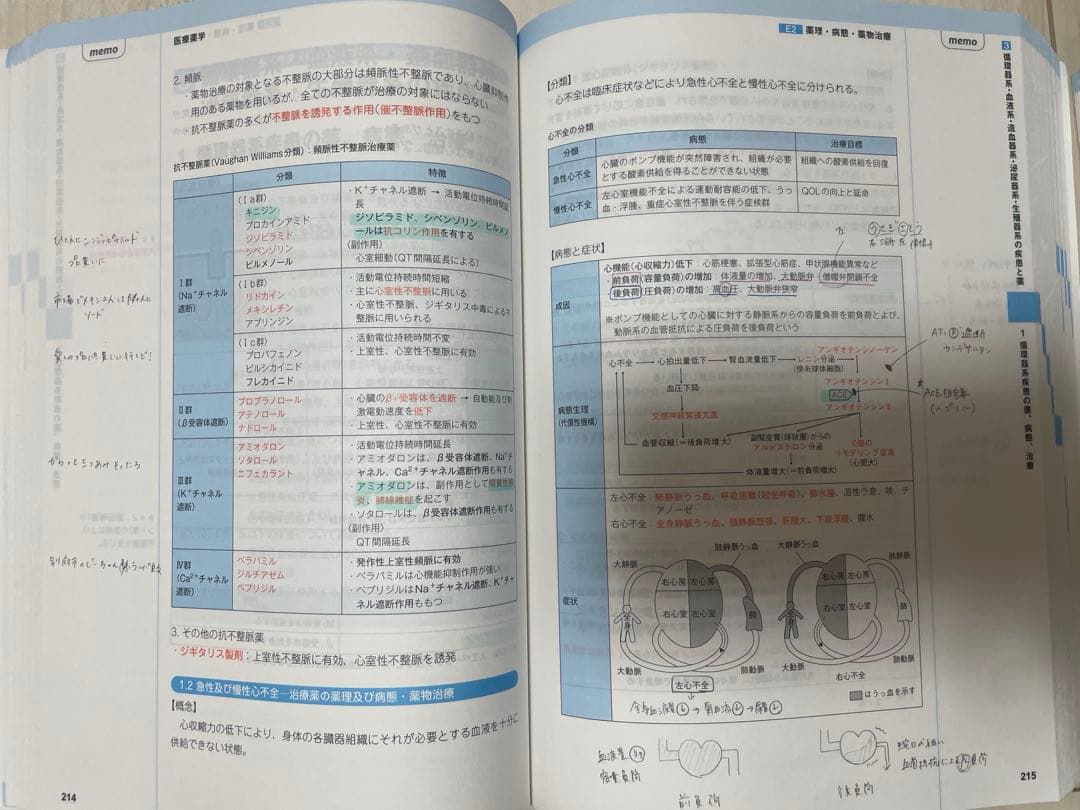 memo
医療薬学
2. 頻脈
・薬物治療の対象となる不整脈の大部分は頻脈性不整脈であり、心臓抑制作
用のある薬物を用いるが、全ての不整脈が治療の対象にはならない
・抗不整脈薬の多くが不整脈を誘発する作用(催不整脈作用)をもつ
抗不整脈薬(Vaughan Williams分類):頻脈性不整脈治療薬
分類
特徴
Ⅰ群
(Na⁺チャネル
遮断)
(Ⅰa群)
キニジン
プロカインアミド
ジソピラミド
シベンゾリン
ピルメノール
・K⁺チャネル遮断 → 活動電位持続時間延
長
ジソピラミド、シベンゾリン、ピルメノ
ールは抗コリン作用を有する
(副作用)
心室細動(QT間隔延長による)
(Ⅰb群)
リドカイン
メキシレチン
アプリンジン
・活動電位持続時間短縮
・主に心室性不整脈に用いる
・心室性不整脈、ジギタリス中毒による不
整脈に用いられる
(Ⅰc群)
プロパフェノン
ピルシカイニド
フレカイニド
・活動電位持続時間不変
・上室性、心室性不整脈に有効
Ⅱ群
(β受容体遮断)
プロプラノロール
アテノロール
ナドロール
・心臓のβ₁受容体を遮断 → 自動能及び刺
激伝動速度を低下
・上室性、心室性不整脈に有効
Ⅲ群
(K⁺チャネル
遮断)
アミオダロン
ソタロール
ニフェカラント
・活動電位持続時間延長
・アミオダロンは、β受容体遮断、Na⁺チ
ャネル、Ca²⁺チャネル遮断作用も有する
・アミオダロンは、副作用として間質性肺
炎、肺線維症を起こす
・ソタロールは、β受容体遮断作用も有する
(副作用)
QT間隔延長
Ⅳ群
(Ca²⁺チャネル
遮断)
ベラパミル
ジルチアゼム
ベプリジル
・発作性上室性頻脈に有効
・ベラパミルは心機能抑制作用が強い
・ベプリジルはNa⁺チャネル遮断、K⁺チャ
ネル遮断作用ももつ
3. その他の抗不整脈薬
・ジギタリス製剤:上室性不整脈に有効、心室性不整脈を誘発
1.2 急性及び慢性心不全―治療薬の薬理及び病態・薬物治療
【概念】
心収縮力の低下により、身体の各臓器組織にそれが必要とする血液を十分に
供給できない状態。
214
E2 薬理・病態・薬物治療
memo
【分類】
心不全は臨床症状などにより急性心不全と慢性心不全に分けられる。
心不全の分類
分類
病態
治療目標
急性心不全
心臓のポンプ機能が突然障害され、組織が必要
とする酸素供給を得ることができない状態
組織への酸素供給を回復
慢性心不全
左心室機能不全による運動耐容能の低下、うっ
血・浮腫、重症心室性不整脈を伴う症候群
QOLの向上と延命
【病態と症状】
成因
心機能(心収縮力)低下:心筋梗塞、拡張型心筋症、甲状腺機能異常など
前負荷(容量負荷)の増加:体液量の増加、大動脈弁・僧帽弁閉鎖不全
後負荷(圧負荷)の増加:高血圧、大動脈弁狭窄
※ポンプ機能としての心臓に対する静脈系からの容量負荷を前負荷とよび、
動脈系の血管抵抗による圧負荷を後負荷という
病態生理
(代償性機構)
心不全
心拍出量低下
腎血流量低下
レニン分泌
(傍糸球体細胞)
アンギオテンシノーゲン
アンギオテンシンⅠ
ACE
アンギオテンシンⅡ
血圧下降
交感神経緊張亢進
血管収縮(=後負荷増大)
副腎皮質(球状層)からの
アルドステロン分泌
心筋の
リモデリング促進
(心肥大)
体液量増大(=前負荷増大)
AT₁ 遮断月
カンデサルタン
ACE阻害薬
(~プリル)
症状
左心不全:肺静脈うっ血、呼吸困難(起坐呼吸)、肺水腫、湿性ラ音、咳、チ
アノーゼ
右心不全:全身静脈うっ血、頸静脈怒張、肝腫大、下肢浮腫、腹水
肺静脈うっ血
大静脈うっ血
肺静脈
大静脈
右心房
左心房
右心室
左心室
全身
肺
大動脈
肺動脈
左心不全
右心房
左心房
右心室
左心室
全身
肺
大動脈
肺動脈
右心不全
はうっ血を示す
血液量
容量負荷
前負荷
後負荷
3 循環器系・血液系・造血器系・泌尿器系・生殖器系の疾患と薬
1 循環器系疾患の薬、病態、治療
215